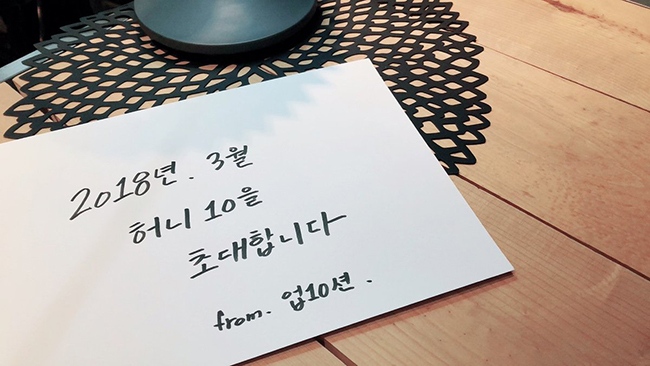 2018년. 3월
허니 10을
초대합니다
from. 업10션.